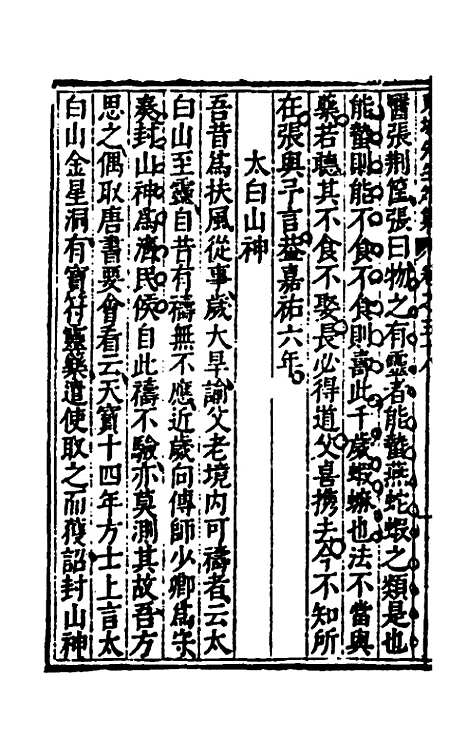 醫張荆筐張曰物之有靈者能蟄燕蛇蝦之類是也
能蟄則能不食不食則壽此千歲蝦蟆也法不當與
藥若聽其不食不娶長必得道父喜携去今不知所
在張與予言葢嘉祐六年
太白山神
吾昔爲扶風從事歲大旱諭父老境内可禱者云太
白山至靈自昔有禱無不應近歲向傳師少卿爲守
奏封山神爲濟民侯自此禱不驗亦莫測其故吾方
思之偶取唐書要會看云天寶十四年方士上言太
白山金星洞有寶符靈藥遣使取之而獲詔封山神